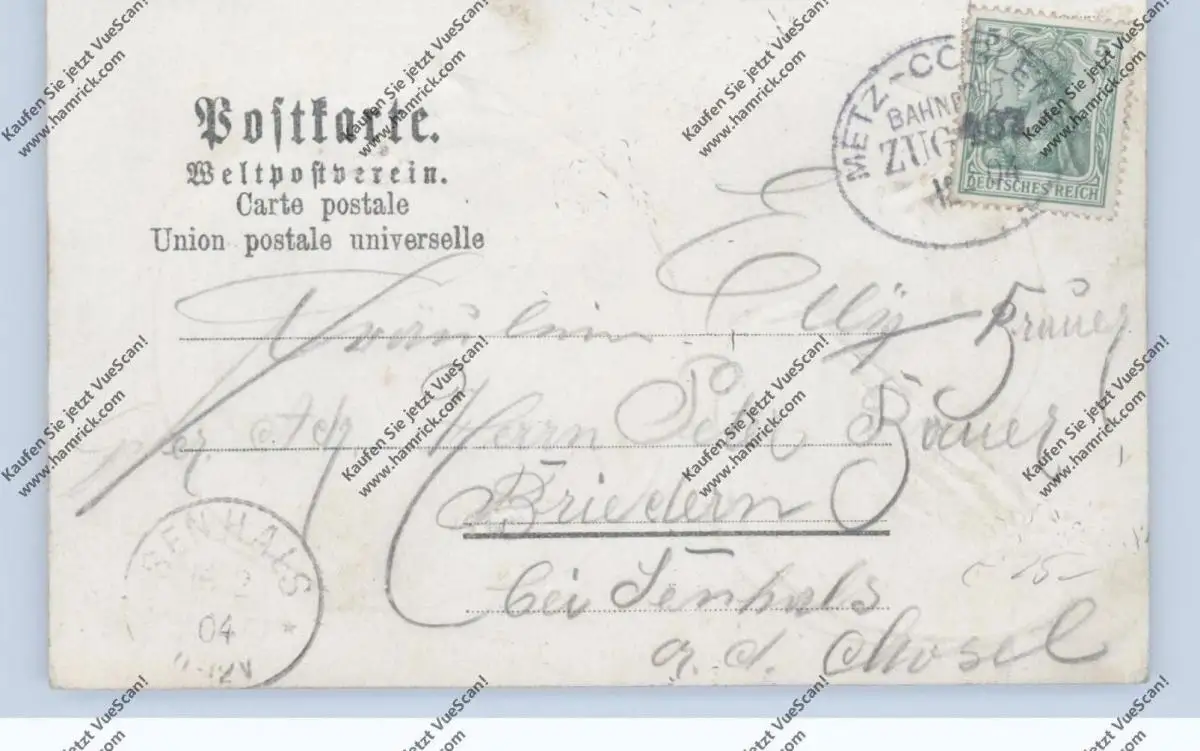 Postkarte.
Weltpostverein.
Carte postale
Union postale universelle
METZ-CO
BAHNPOST
ZUG 407
04
5 5
DEUTSCHES REICH
Fräulein Elly Bräuer
per Adr. Herrn Peter Bräuer
Briedern
bei Senhals
a. d. Mosel
€ 15-
SENHALS
04
Kaufen Sie jetzt VueScan!
www.hamrick.com